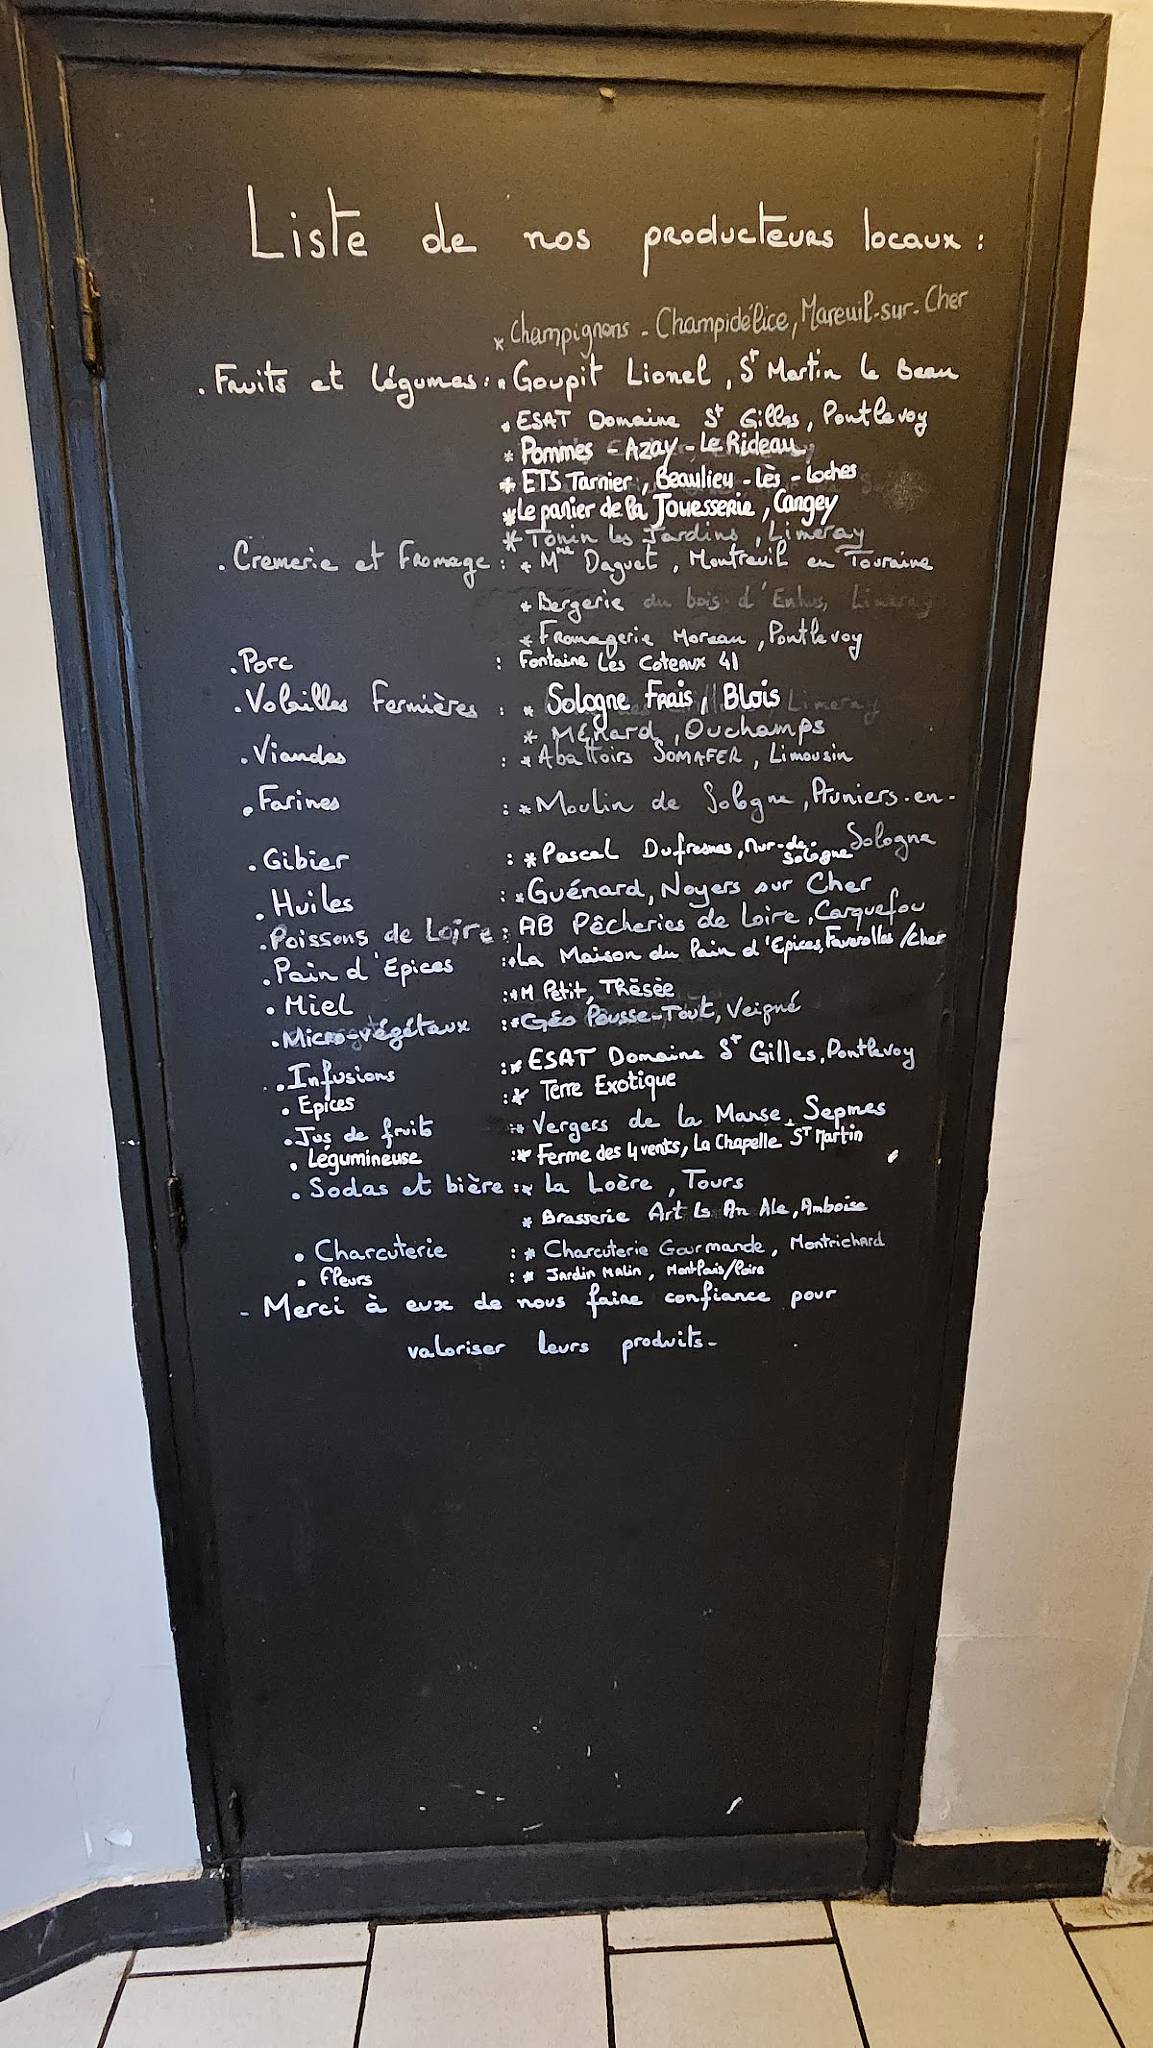 Liste de nos producteurs locaux :
* Champignons - Champidélice, Mareuil-sur-Cher
. Fruits et légumes : * Goupit Lionel, St Martin le Beau
* ESAT Domaine St Gilles, Pontlevoy
* Pommes - Azay-Le Rideau
* ETS Tarnier, Beaulieu-lès-Loches
* Le panier de la Jouesserie, Cangey
* Tonin les Jardins, Limeray
. Cremerie et Fromage : * Mme Daguet, Montreuil en Touraine
* Bergerie du bois d'Enhus, Limeray
* Fromagerie Moreau, Pontlevoy
. Porc : Fontaine Les Coteaux 41
. Volailles Fermières : * Sologne Frais, Blois Limeray
* Ménard, Ouchamps
. Viandes : * Abattoirs SOMAFER, Limousin
. Farines : * Moulin de Sologne, Pruniers-en-
Sologne
. Gibier : * Pascal Dufresnes, Mur-de-
Sologne
. Huiles : * Guénard, Noyers sur Cher
. Poissons de Loire : AB Pêcheries de Loire, Carquefou
. Pain d'Epices : * La Maison du Pain d'Epices, Faverolles /Cher
. Miel : * M Petit, Thésée
. Micro-végétaux : * Géo Pousse-Tout, Veigné
. Infusions : * ESAT Domaine St Gilles, Pontlevoy
. Epices : * Terre Exotique
. Jus de fruits : * Vergers de la Manse, Sepmes
. Légumineuse : * Ferme des 4 vents, La Chapelle St Martin
. Sodas et bière : * La Loère, Tours
* Brasserie Art Is An Ale, Amboise
. Charcuterie : * Charcuterie Gourmande, Montrichard
. Fleurs : * Jardin Malin, Montlouis/Loire
- Merci à eux de nous faire confiance pour
valoriser leurs produits -